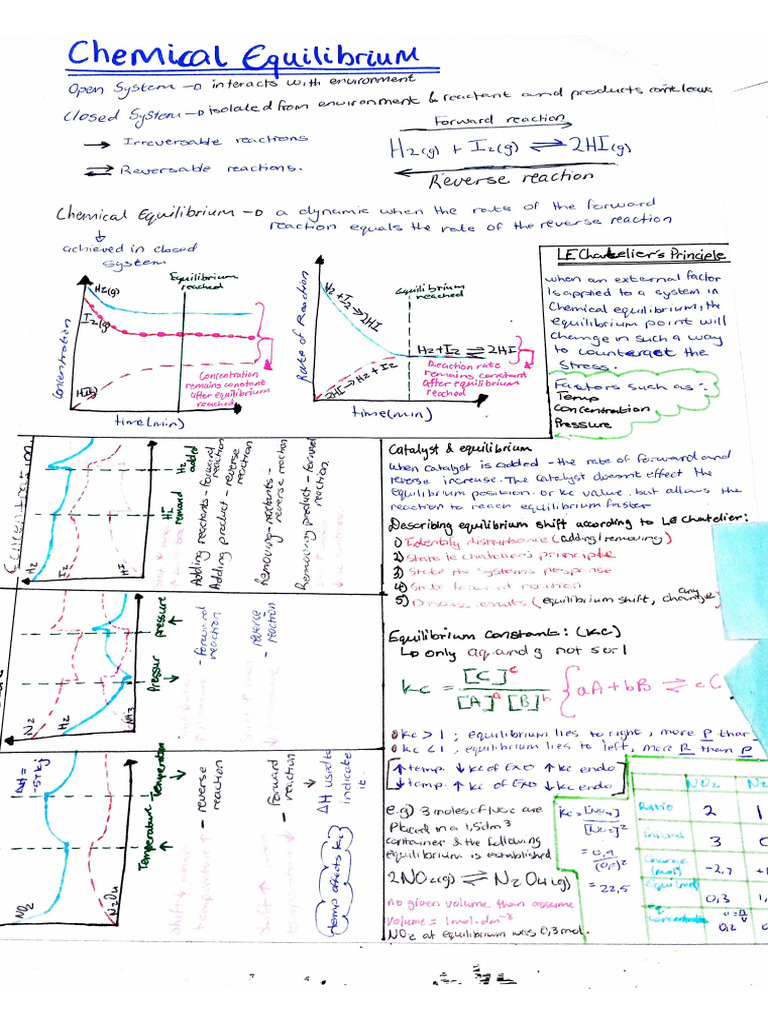 Chemical Equilibrium
Open System → interacts with environment
Closed System → isolated from environment & reactant and products cant leave
→ Irreversable reactions
⇌ Reversable reactions.
Forward reaction
H2(g) + I2(g) ⇌ 2HI(g)
Reverse reaction
Chemical Equilibrium → a dynamic when the rate of the forward
reaction equals the rate of the reverse reaction
achieved in closed
system
Concentration
H2(g)
I2(g)
HI(g)
Equilibrium
reached
Concentration
remains constant
after equilibrium
reached
time(min)
Rate of Reaction
H2 + I2 → 2HI
2HI → H2 + I2
Equilibrium
reached
H2 + I2 ⇌ 2HI
Reaction rate
remains constant
after equilibrium
reached
time(min)
LE Chatelier's Principle
when an external factor
is applied to a system in
Chemical equilibrium, the
equilibrium point will
change in such a way
to counteract the
Stress.
Factors such as :-
Temp
Concentration
Pressure
Concentration
H2
I2
HI
H2
added
HI
removed
Adding reactants - forward
reaction
Adding product - reverse
reaction
Removing - reactants -
reverse reaction
Removing product - forward
reaction
N2
H2
NH3
Pressure ↓
pressure ↑
- forward
reaction
- reverse
reaction
ΔH =
-57kj
NO2
N2O4
Temperature ↑
Temperature ↓
- reverse
reaction
- forward
reaction
ΔH used to
indicate
it.
temp affects kc
Catalyst & equilibrium
when catalyst is added - the rate of forward and
reverse increase. The catalyst doesnt effect the
equilibrium position or kc value, but allows the
reaction to reach equilibrium faster
Describing equilibrium shift according to LE Chatelier:
1) Identify disturbance (adding/removing)
2) State le chatelier's principle
3) State the systems response
4) State forward reaction
5) Discuss results (equilibrium shift, any changes
Equilibrium Constants: (Kc)
↳ only aq and g not s or l
Kc = [C]c / [A]a [B]b { aA + bB ⇌ cC
kc > 1 ; equilibrium lies to right, more P than
kc < 1 ; equilibrium lies to left, more R than P
↑ temp. ↓ kc of Exo ↑ kc endo
↓ temp. ↑ kc of Exo ↓ kc endo
e.g) 3 moles of NO2 are
placed in a 1,5dm3
container & the following
equilibrium is established
2NO2(g) ⇌ N2O4(g)
no given volume then assume
volume = 1mol.dm-3
NO2 at equilibrium was 0,3 mol.
= 22,5
NO2
Ratio 2 1
Initial 3 0
Change (mol) -2,7
Equil(mol) 0,3
0,2